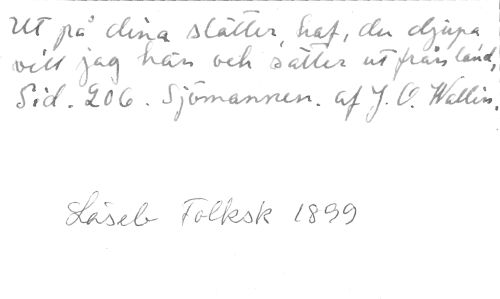 Ut på dina slätter, haf, du djupa
vill jag hän och sätter ut från land,
Sid. 206. Sjömannen. af J. O. Wallin.
Läseb Folksk 1899